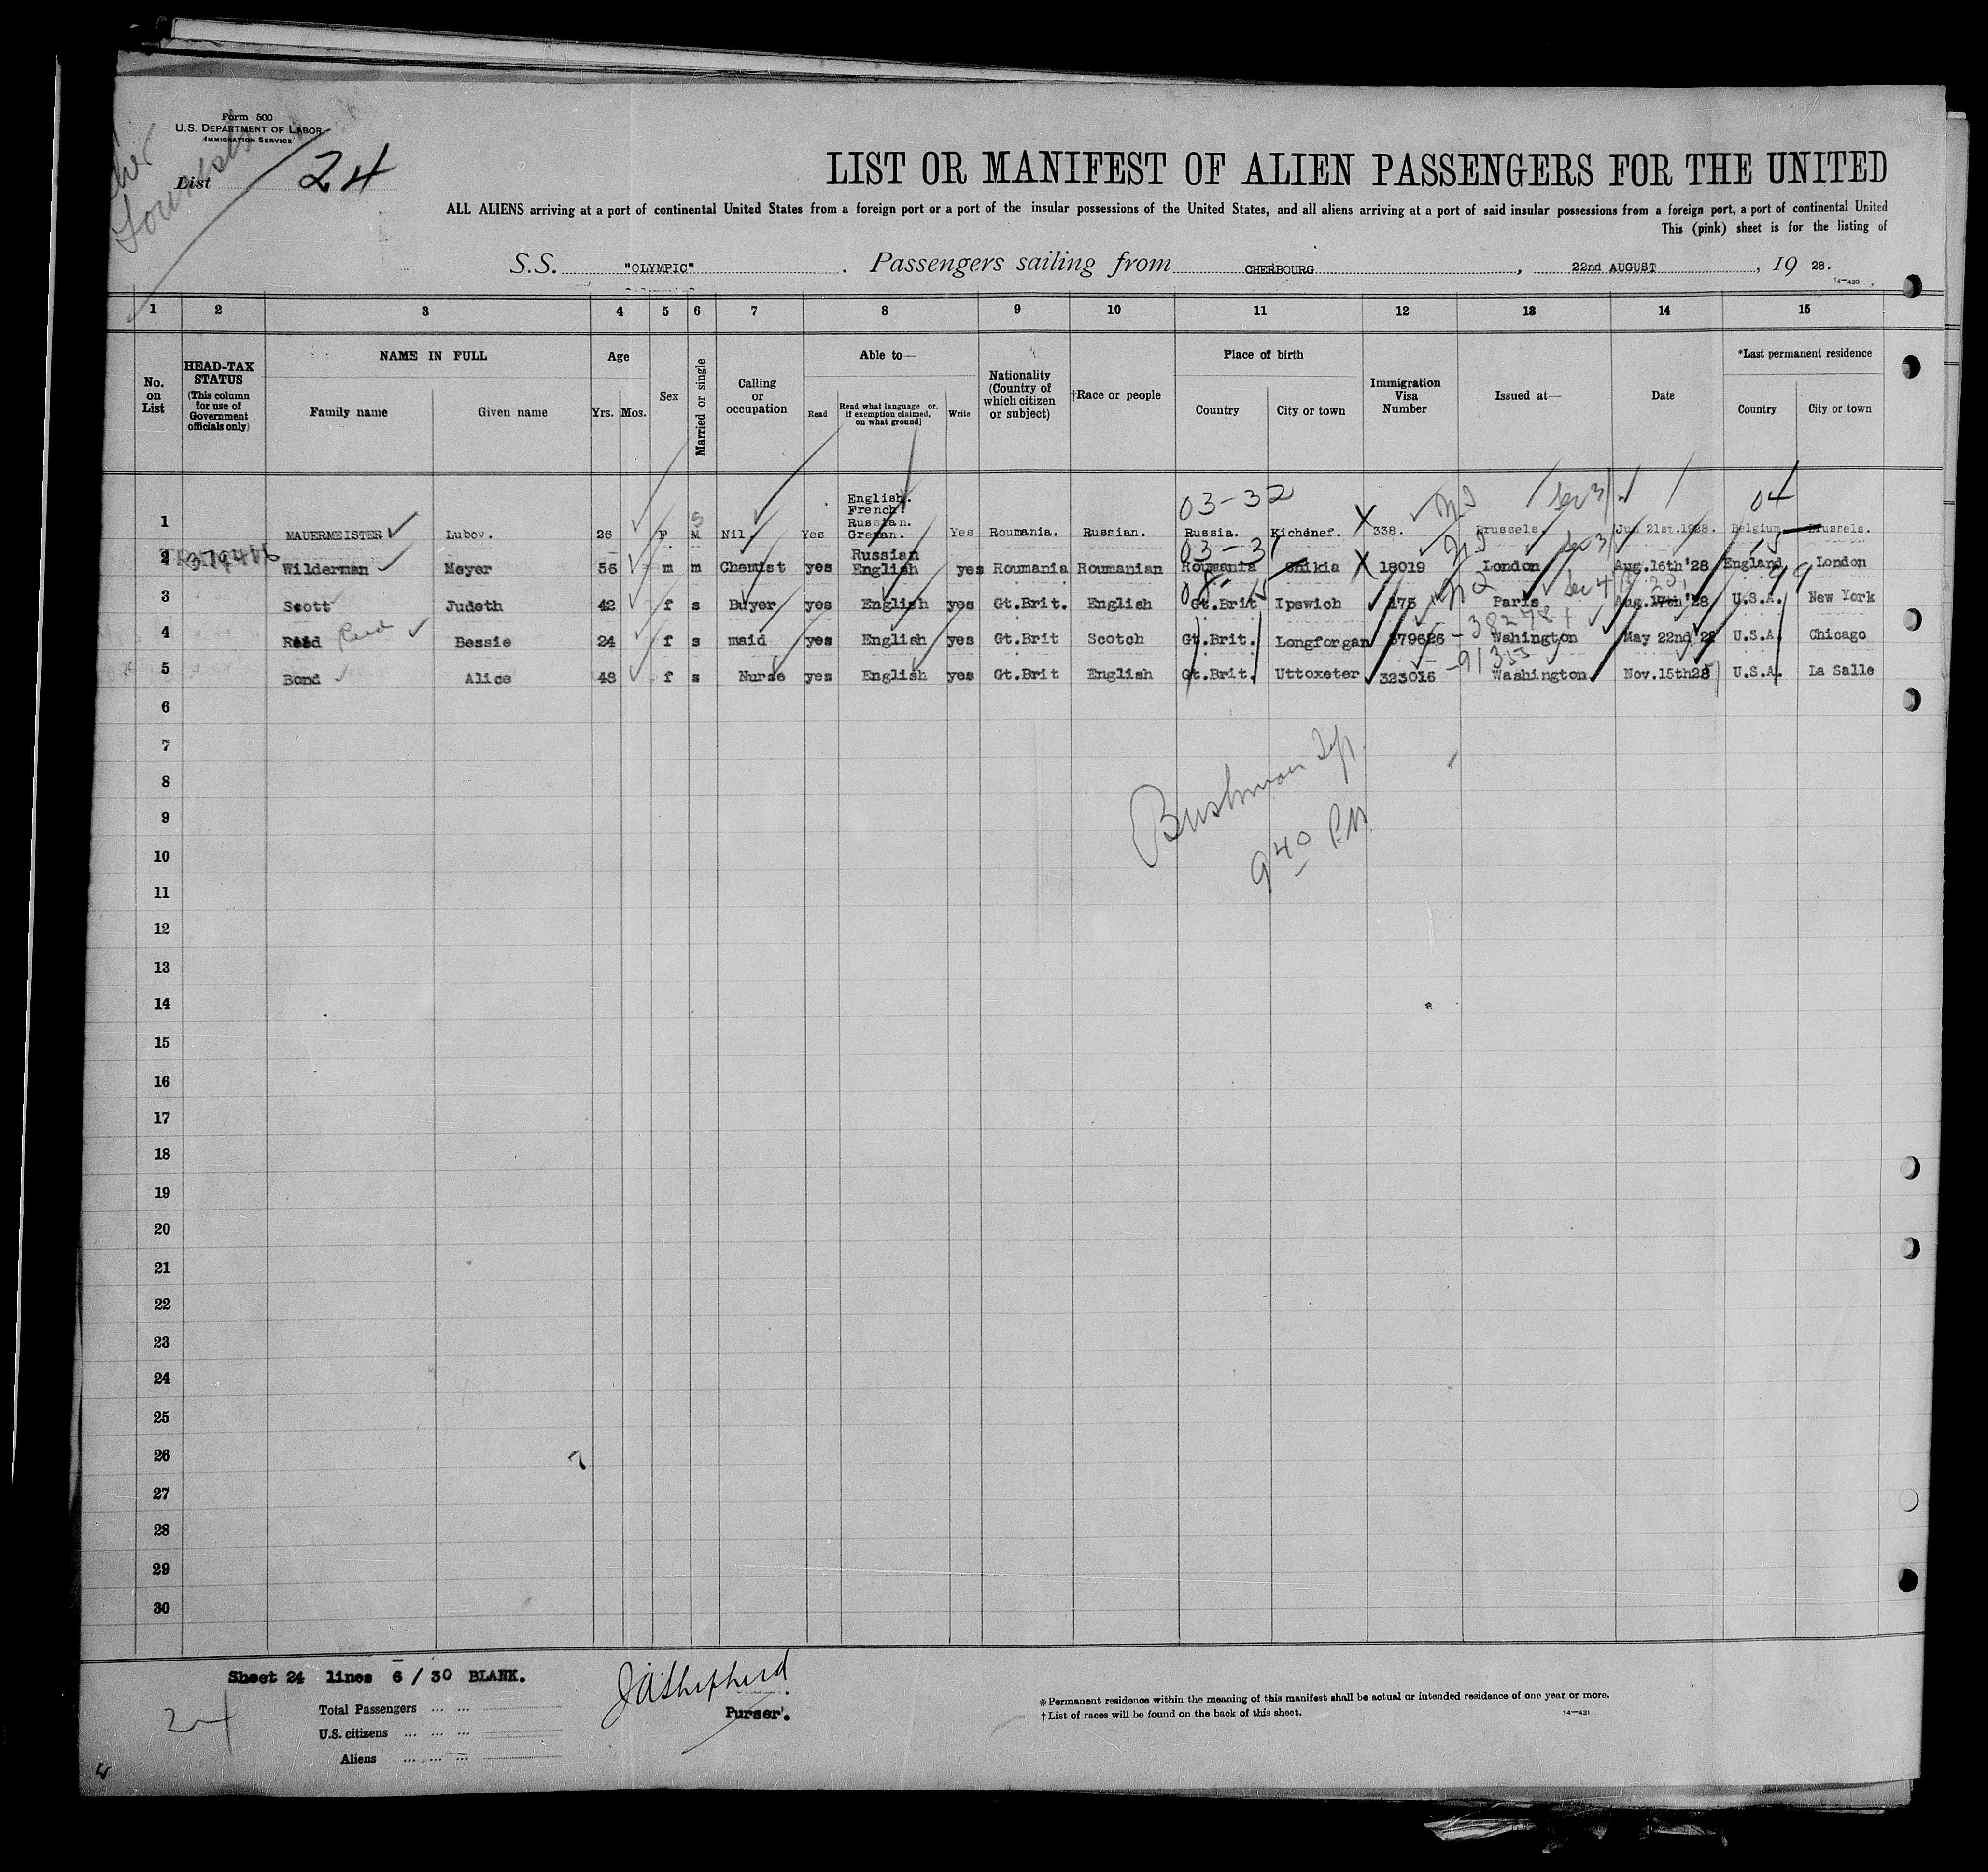 Form 500
U.S. DEPARTMENT OF LABOR
IMMIGRATION SERVICE
List 24
LIST OR MANIFEST OF ALIEN PASSENGERS FOR THE UNITED
ALL ALIENS arriving at a port of continental United States from a foreign port or a port of the insular possessions of the United States, and all aliens arriving at a port of said insular possessions from a foreign port, a port of continental United
This (pink) sheet is for the listing of
S.S. "OLYMPIC" . Passengers sailing from CHERBOURG , 22nd AUGUST , 19 28.
14—430
1 2 3 4 5 6 7 8 9 10 11 12 13 14 15
No. on List
HEAD-TAX STATUS
(This column for use of Government officials only)
NAME IN FULL
Family name Given name
Age
Yrs. Mos.
Sex
Married or single
Calling or occupation
Able to—
Read Read what language or, if exemption claimed, on what ground] Write
Nationality (Country of which citizen or subject)
†Race or people
Place of birth
Country City or town
Immigration Visa Number
Issued at—
Date
*Last permanent residence
Country City or town
03-32 04
1 MAUERMEISTER Lubov. 26 F M S Nil. Yes English. French. Russian. Greman. Yes Roumania. Russian. Russia. Kichénef. 338. Brussels Jun 21st.1928. Belgium Brussels.
03-31
2 Wilderman Meyer 56 m m Chemist yes Russian English yes Roumania Roumanian Roumania Chikia 18019 London Aug.16th'28 England London
3 Scott Judeth 42 f s Buyer yes English yes Gt.Brit. English Gt.Brit Ipswich 175 Paris Aug.17th'28 U.S.A. New York
4 Read Reid Bessie 24 f s maid yes English yes Gt.Brit Scotch Gt.Brit. Longforgan 379626 - 382784 Wahington May 22nd'28 U.S.A. Chicago
5 Bond Alice 48 f s Nurse yes English yes Gt.Brit English Gt.Brit. Uttoxeter 323016 Washington Nov.15th28 U.S.A. La Salle
6
7
8
9
10
11
12
13
14
15
16
17
18
19
20
21
22
23
24
25
26
27
28
29
30
Bushman
9 40 P.M.
Sheet 24 lines 6 / 30 BLANK.
24
Total Passengers ... ...
U.S. citizens ... ...
Aliens ... ... ...
J A Shepherd
Purser.
*Permanent residence within the meaning of this manifest shall be actual or intended residence of one year or more.
†List of races will be found on the back of this sheet.
14—431